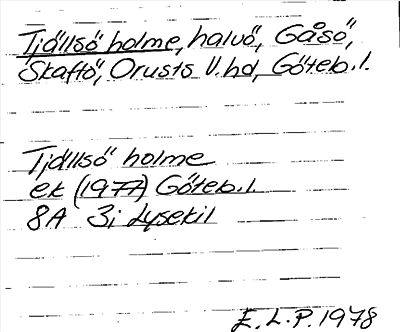 Tjällsö holme, halvö, Gåsö,
Skaftö, Orusts V. hd, Göteb. l.
Tjällsö holme
ek (1977) Göteb. l.
8A 3i Lysekil
E. L. P. 1978